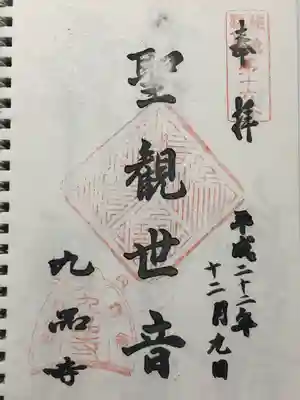 奉拝
平成二十二年
十二月九日
聖観世音
九品寺